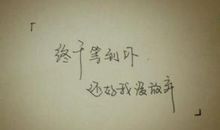 「
终于等到你
还好我没放弃
」